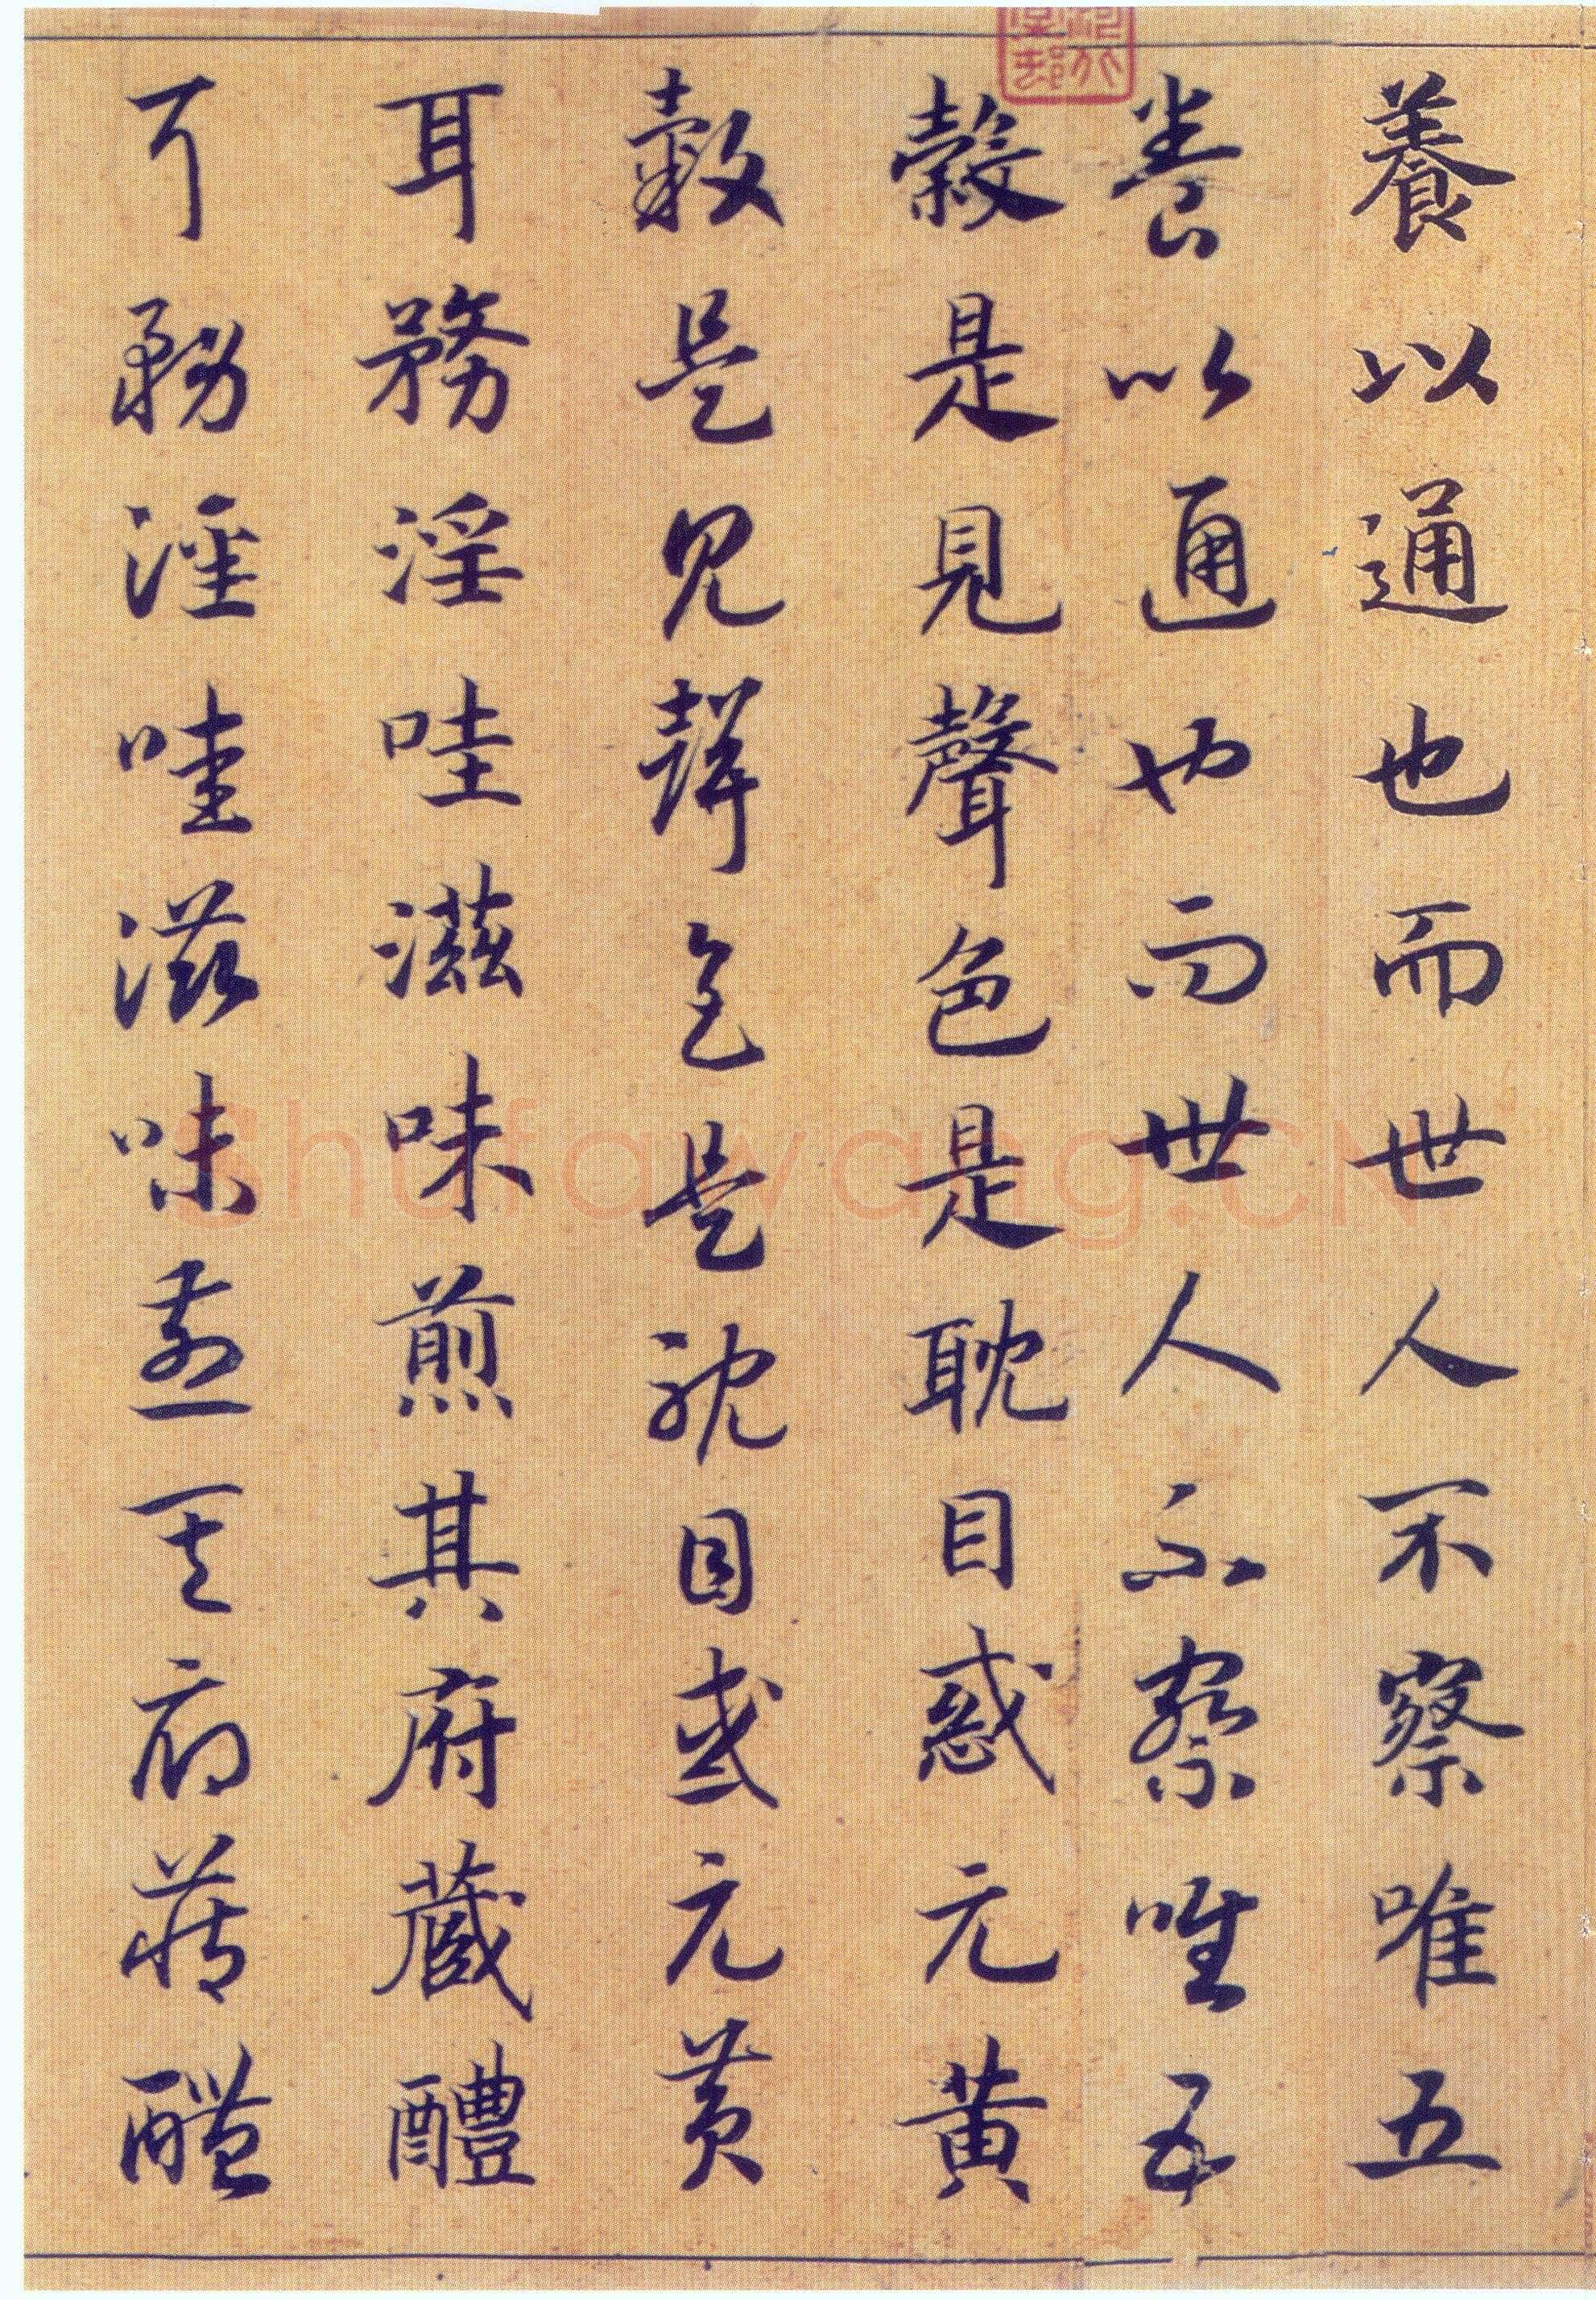 養以通也而世人不察唯五
養以通也而世人不察唯五
穀是見聲色是耽目惑元黄
穀是見聲色是耽目惑元黄
耳務淫哇滋味煎其府蔵醴
耳務淫哇滋味煎其府蔵醴
Shufawang.CN